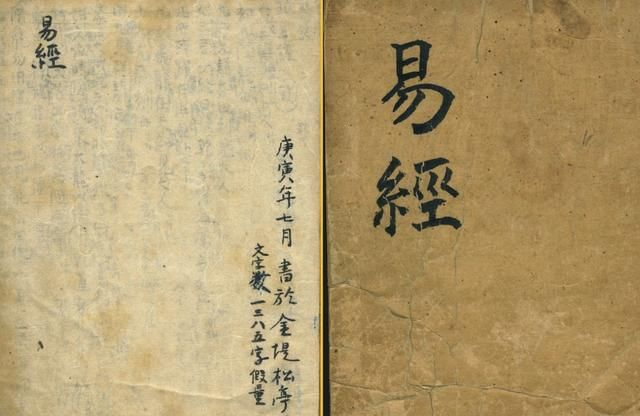 易經
庚寅年七月 書於金堤松亭
文字數 一三八五字假量
易經